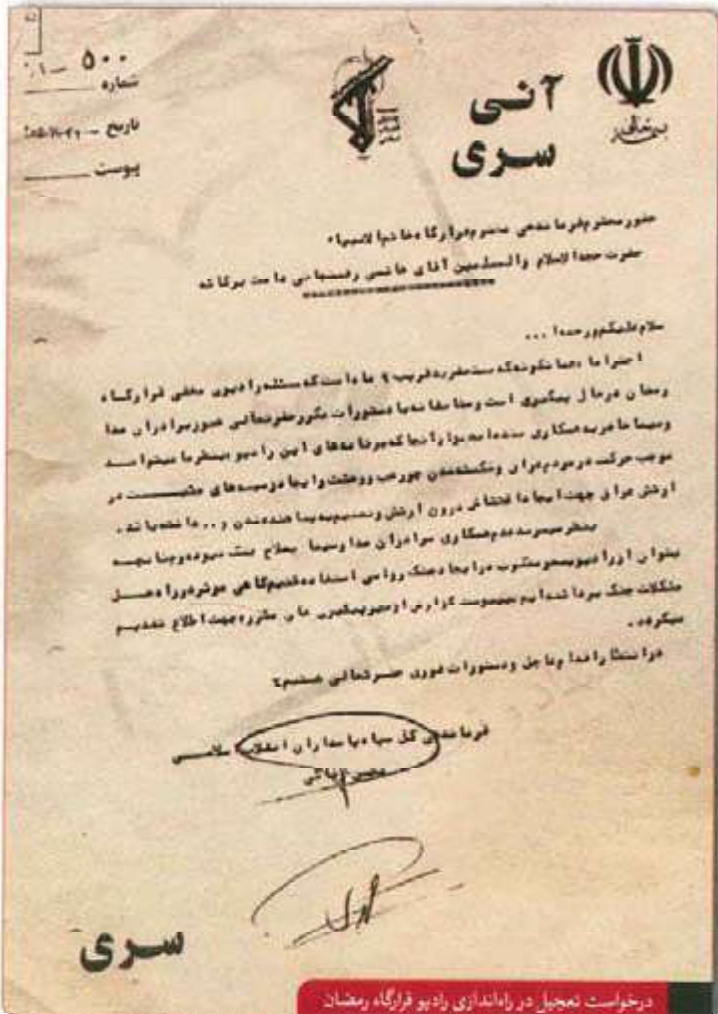 ۵۰۰
شماره
تاریخ
پیوست
آنی
سری
بسمه تعالی
حضور محترم فرماندهی محترم قرارگاه خاتم الانبیاء
حضرت حجةالاسلام والمسلمین آقای هاشمی رفسنجانی دامت برکاته
سلام علیکم ورحمةا ...
احتراما که مدت تقریب ۹ ماه است که مسئله رادیوی مخفی قرارگاه
رمضان در حال پیگیری است ومتاسفانه با دستورات مکرر حضرتعالی هنوز برادران صدا
وسیما حاضر به همکاری نشده اند واز آنجا که برنامه های این رادیو میتواند
موجب حرکت در مردم عراق وشکسته شدن جو رعب ووحشت وایجاد در
ارتش عراق جهت ایجاد اغتشاش درون ارتش وتصمیم به پناهنده شدن و.. داشته باشد .
بنظر میرسد عدم همکاری برادران صدا وسیما بصلاح جنگ نبوده وچنانچه
بتوان از رادیو در ایجاد جنگ روانی استفاده کنیم گامی موثر در راه حل
مشکلات جنگ برداشته ایم بپیوست گزارش از جهت اطلاع تقدیم
میگردد .
در انتظار اقدام عاجل ودستورات فوری حضرتعالی هستیم
فرماندهی کل سپاه پاسداران انقلاب اسلامی
محسن رضائی
سری
درخواست تعجیل در راه‌اندازی رادیو قرارگاه رمضان